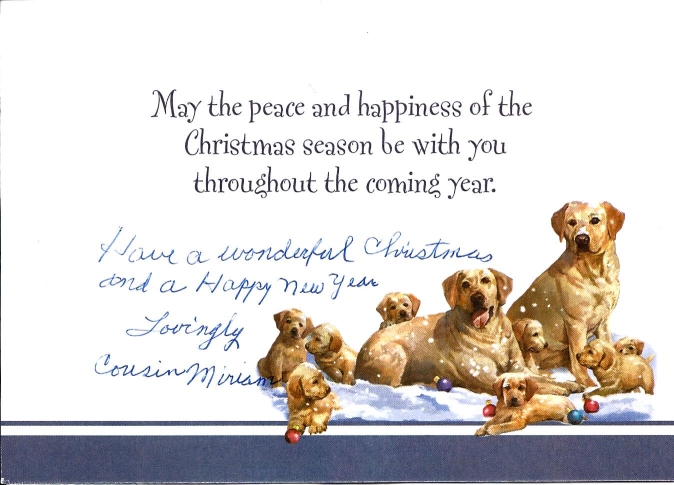 May the peace and happiness of the
Christmas season be with you
throughout the coming year.
Have a wonderful Christmas
and a Happy New Year
Lovingly
Cousin Miriam